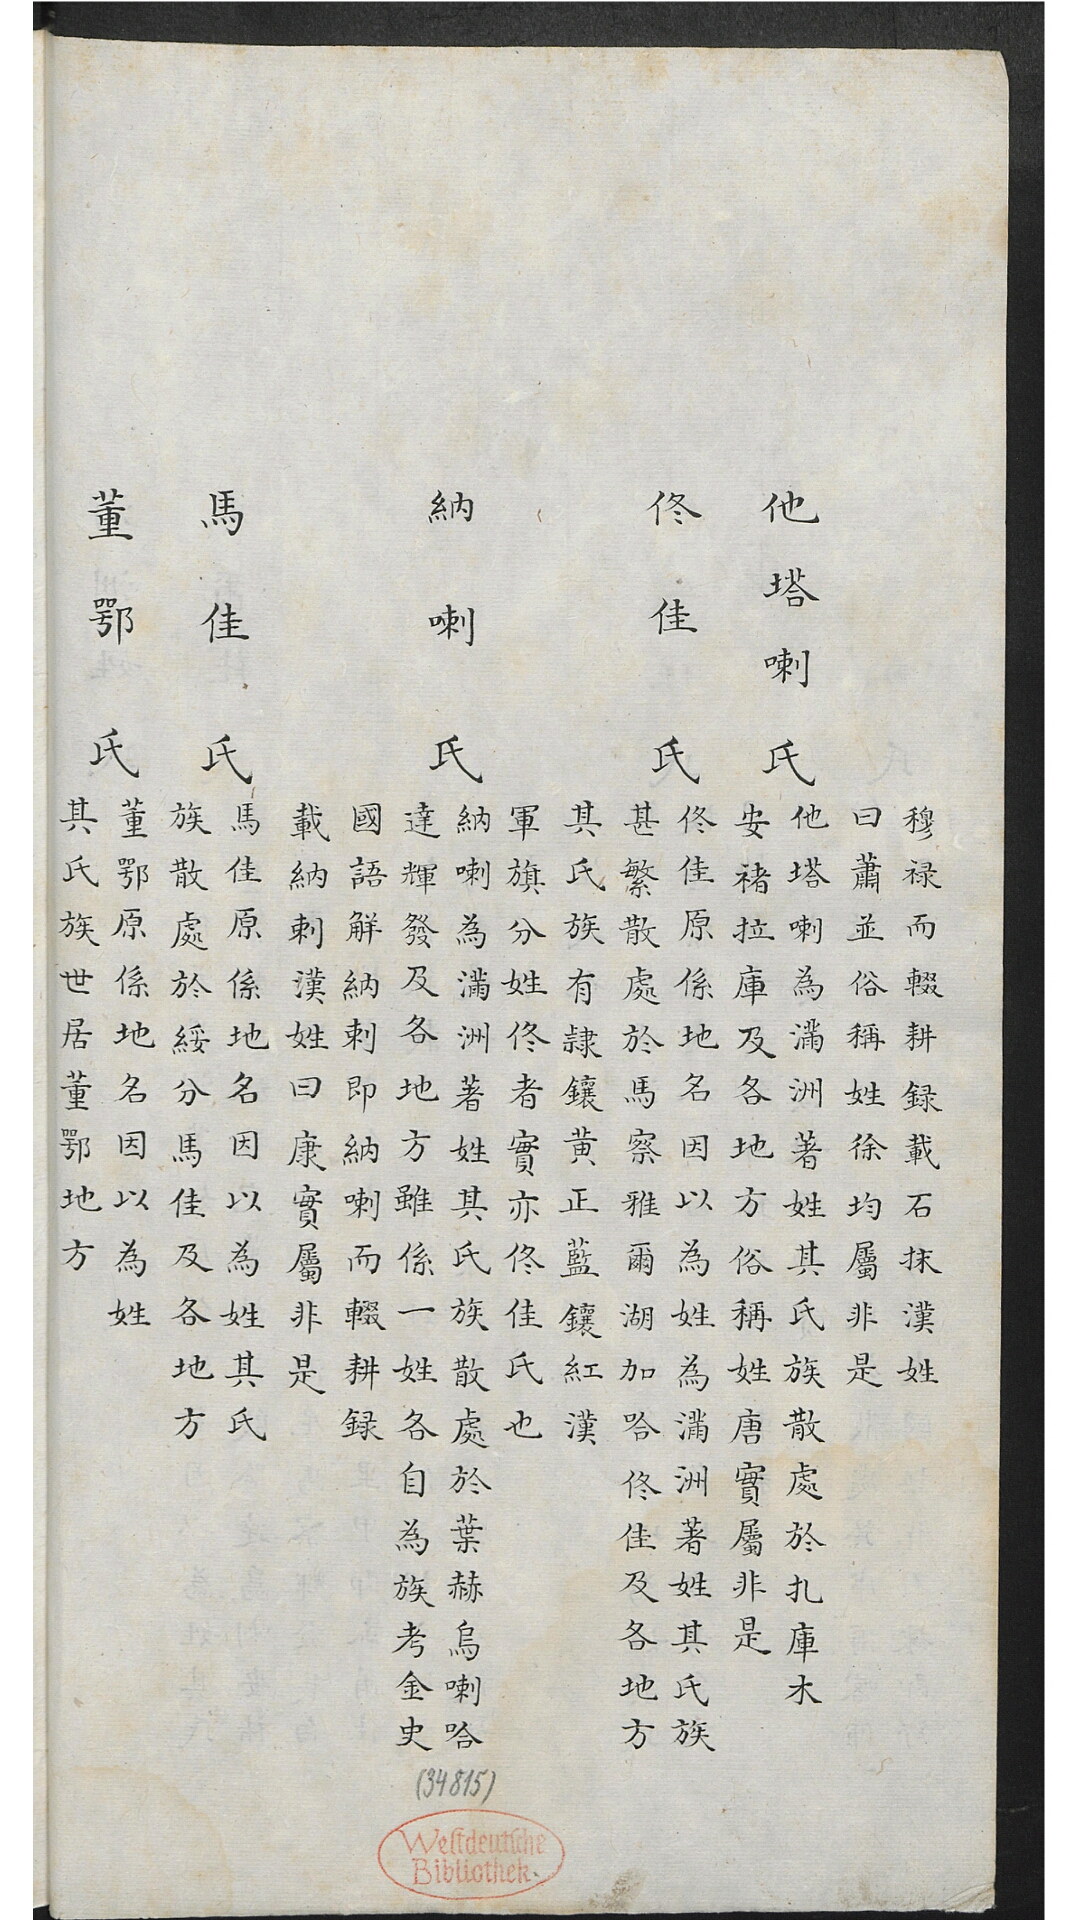 穆禄而輟耕録載石抹漢姓
曰蕭並俗稱姓徐均屬非是
他塔喇氏
他塔喇為滿洲著姓其氏族散處於扎庫木
安褚拉庫及各地方俗稱姓唐實屬非是
佟佳氏
佟佳原係地名因以為姓為滿洲著姓其氏族
甚繁散處於馬察雅爾湖加哈佟佳及各地方
其氏族有隸鑲黄正藍鑲紅漢
軍旗分姓佟者實亦佟佳氏也
納喇氏
納喇為滿洲著姓其氏族散處於葉赫烏喇哈
達輝發及各地方雖係一姓各自為族考金史
國語解納剌即納喇而輟耕録
載納剌漢姓曰康實屬非是
馬佳氏
馬佳原係地名因以為姓其氏
族散處於綏分馬佳及各地方
董鄂氏
董鄂原係地名因以為姓
其氏族世居董鄂地方
(34815)
Westdeutsche
Bibliothek.